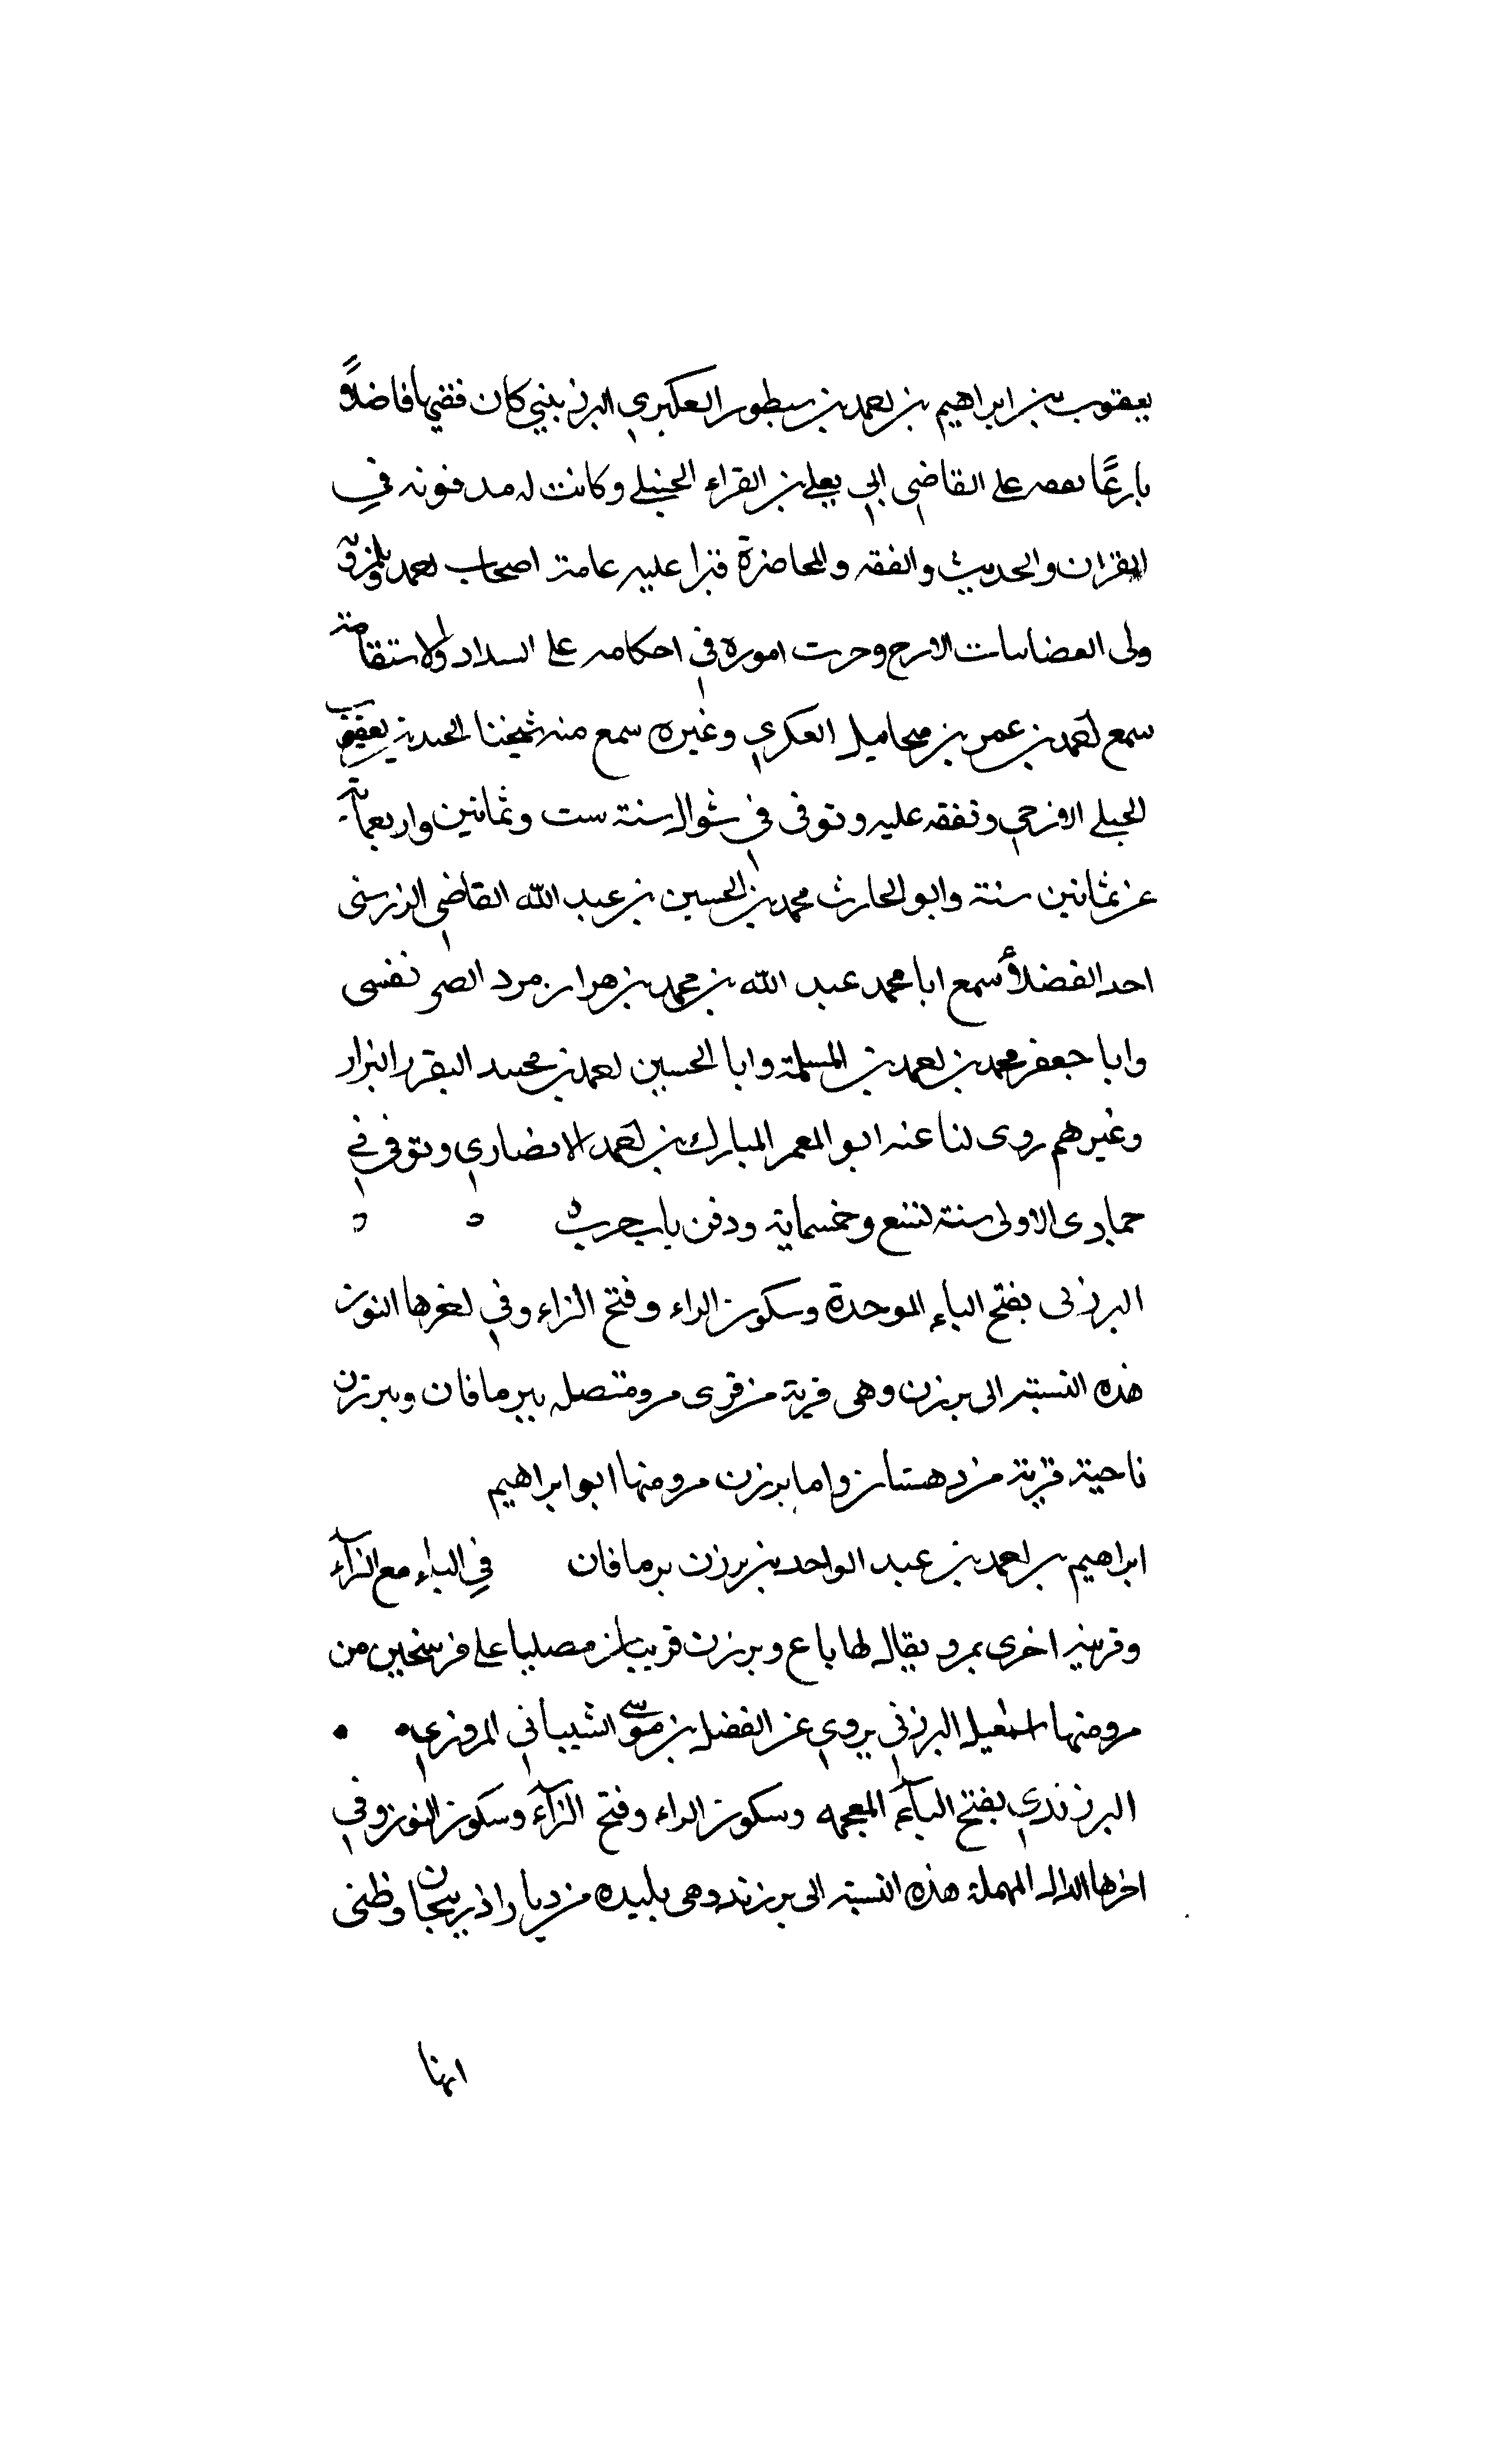 يعقوب بن ابراهيم بن احمد بن سطور العكبري البرزبيني كان فقيها فاضلاً و
بارعًا تفقه على القاضي ابي يعلى بن الفراء الحنبلى وكانت له مد فنونه في
القران والحديث والفقه والمحاضرة قرا عليه عامة اصحاب احمد
ولى القضا بباب الازج وجرت اموره في احكامه على السداد والاستقامة
سمع احمد بن عمر بن ميخاميل العكبري وغيره سمع منه شيخنا يعقوب
الجبلى الازجي وتفقه عليه وتوفى في شوال سنة ست وثمانين واربعماية
عن ثمانين سنة وابو الحارث محمد بن الحسين بن عبد الله القاضي
احد الفضلاء سمع ابا محمد عبد الله بن محمد بن هزار مرد الصر نفسى
وابا جعفر محمد بن احمد بن المسلمة وابا الحسين احمد بن محمد النقور البزار
وغيرهم روى لنا عنه ابو المعمر المبارك بن احمد الانصاري وتوفى في
جمادى الاولى سنة تسع وخمسماية ودفن بباب حرب ه
البرزنى بفتح الباء الموحدة وسكون الراء وفتح الزاء وفي اخرها النون
هذه النسبة الى برزن وهى قرية من قرى مرو متصله ببرماقان وببرزن
ناحية قرية من دهستان واما برزن مرو منها ابو ابراهيم
ابراهيم بن احمد بن عبد الواحد بن برزن برماقان في الباء مع الزآء
وقرية اخرى بمرو يقال لها باغ وبرزن قريبان مصليا على فرسخين من
مرو منها اسمعيل البرزني يروي عن الفضل بن موسى الشيباني المروزي
البرزندي بفتح البآء المعجمه وسكون الراء وفتح الزآء وسكون النون وفي
اخرها الدال المهملة هذه النسبة الى برزند وهى بليده من ديار اذربيجان وظنى
انها